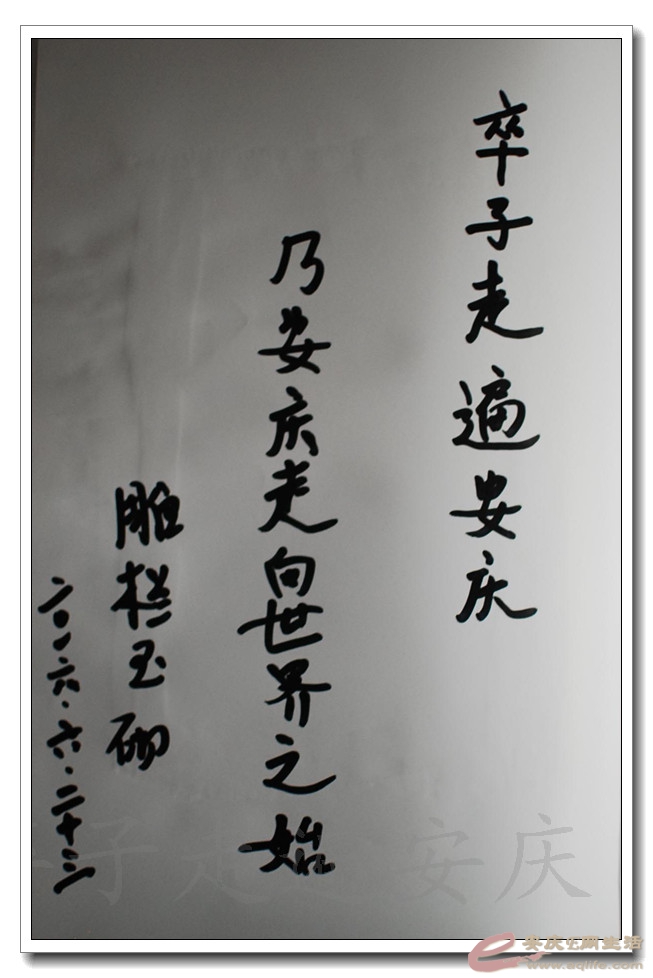 卒子走遍安庆
乃安庆走向世界之始
雕栏玉砌
二〇一六·六·二十三
卒子走遍安庆
安庆E网生活
www.aqlife.com